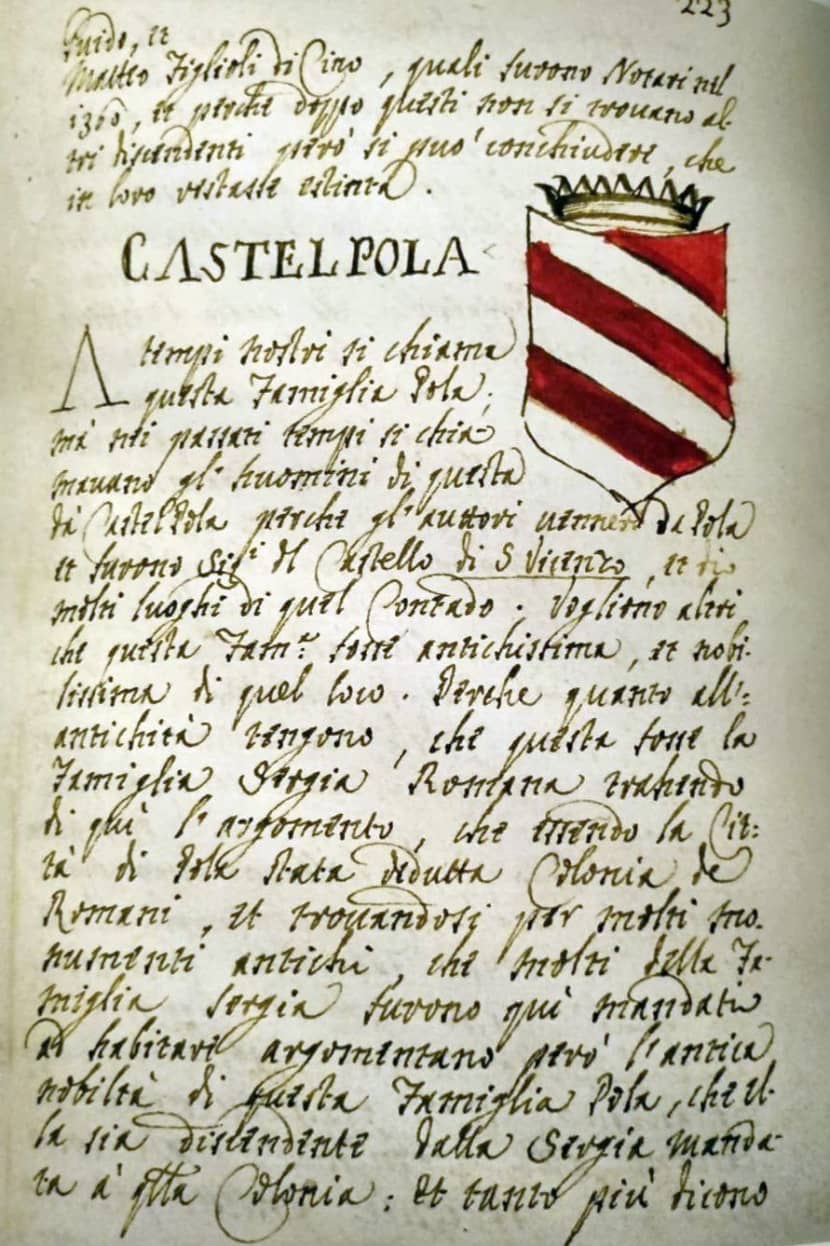 223
Guido, et
Matteo Figlioli di Cino, quali furono Notari nel
1360, et perche doppo questi non si trouano al-
tri discendenti però si può conchiudere, che
in loro restasse estinta.
CASTELPOLA
A tempi nostri si chiama
questa Famiglia Pola;
mà nei passati tempi si chia-
mauano gl' huomini di questa
dà CastelPola perche gl' auttori uennero da Pola
et furono Sig.ri del Castello di S Vicenzo, et di
molti luoghi di quel Contado. Vogliono altri
che questa Fam.a fosse antichissima, et nobi-
lissima di quel loco. Perche quanto all'=
antichità tengono, che questa fosse la
Famiglia Sergia Romana trahendo
di quì l'argomento, che essendo la Cit=
tà di Pola stata dedutta Colonia de
Romani, et trouandosi per molti mo-
numenti antichi, che molti della Fa-
miglia Sergia furono quì mandati
ad habitare argomentano però l'antica
nobiltà di questa Famiglia Pola, che el-
la sia discendente dalla Sergia manda-
ta à qlla Colonia: Et tanto più dicono